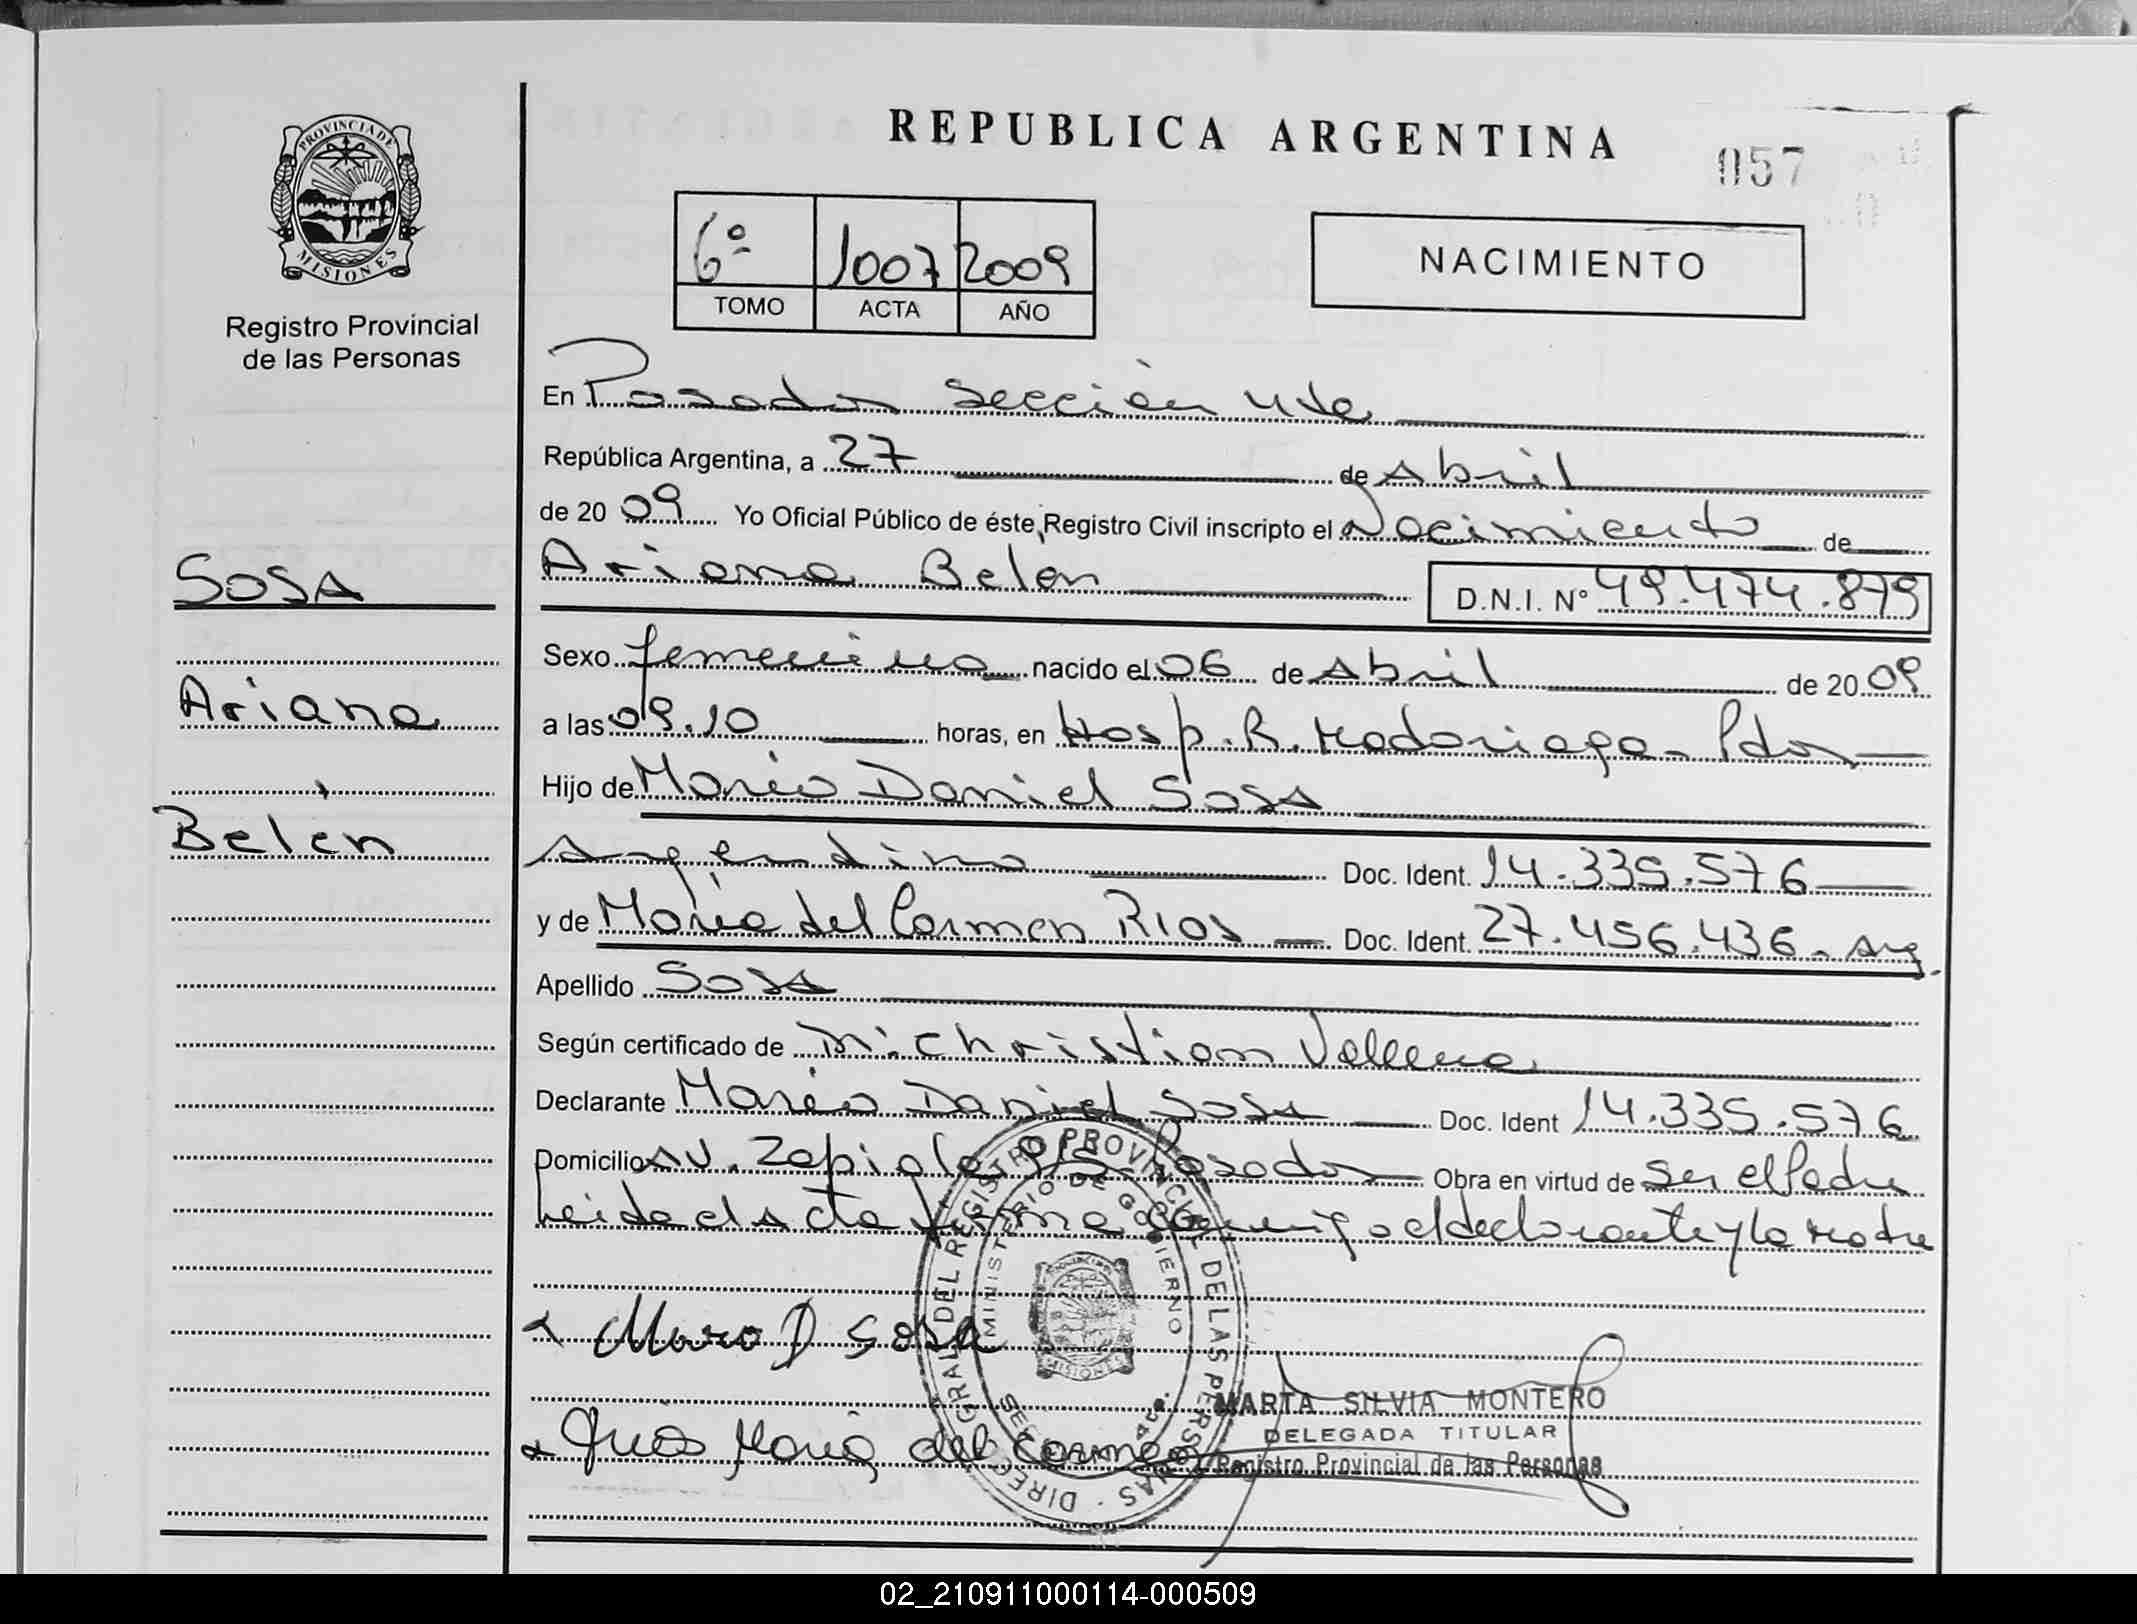 REPUBLICA ARGENTINA
057
PROVINCIA DE
MISIONES
Registro Provincial
de las Personas
6º 1007 2009
TOMO ACTA AÑO
NACIMIENTO
En Posadas Sección 4ta
República Argentina, a 27 de Abril
de 20 09 Yo Oficial Público de éste Registro Civil inscripto el Nacimiento de
Ariana Belen
D.N.I. Nº 49.474.879
SOSA
Ariana
Belen
Sexo femenino nacido el 06 de Abril de 20 09
a las 09.10 horas, en Hosp. R. Madariaga - Pdas
Hijo de Mario Daniel SOSA
Argentino Doc. Ident. 14.335.576
y de María del Carmen RIOS Doc. Ident. 27.456.436 - Arg.
Apellido SOSA
Según certificado de Dr. Christian
Declarante Mario Daniel Sosa Doc. Ident 14.335.576
Domicilio AV. Zapiola Posadas Obra en virtud de Ser el Padre
Leida el Acta Firma Conmigo el declarante y la Madre
Mario D Sosa
María del Carmen
DIREC. GRAL. DEL REGISTRO PROVINCIAL DE LAS PERSONAS
MINISTERIO DE GOBIERNO
MISIONES
MARTA SILVIA MONTERO
DELEGADA TITULAR
Registro Provincial de las Personas
02_210911000114-000509